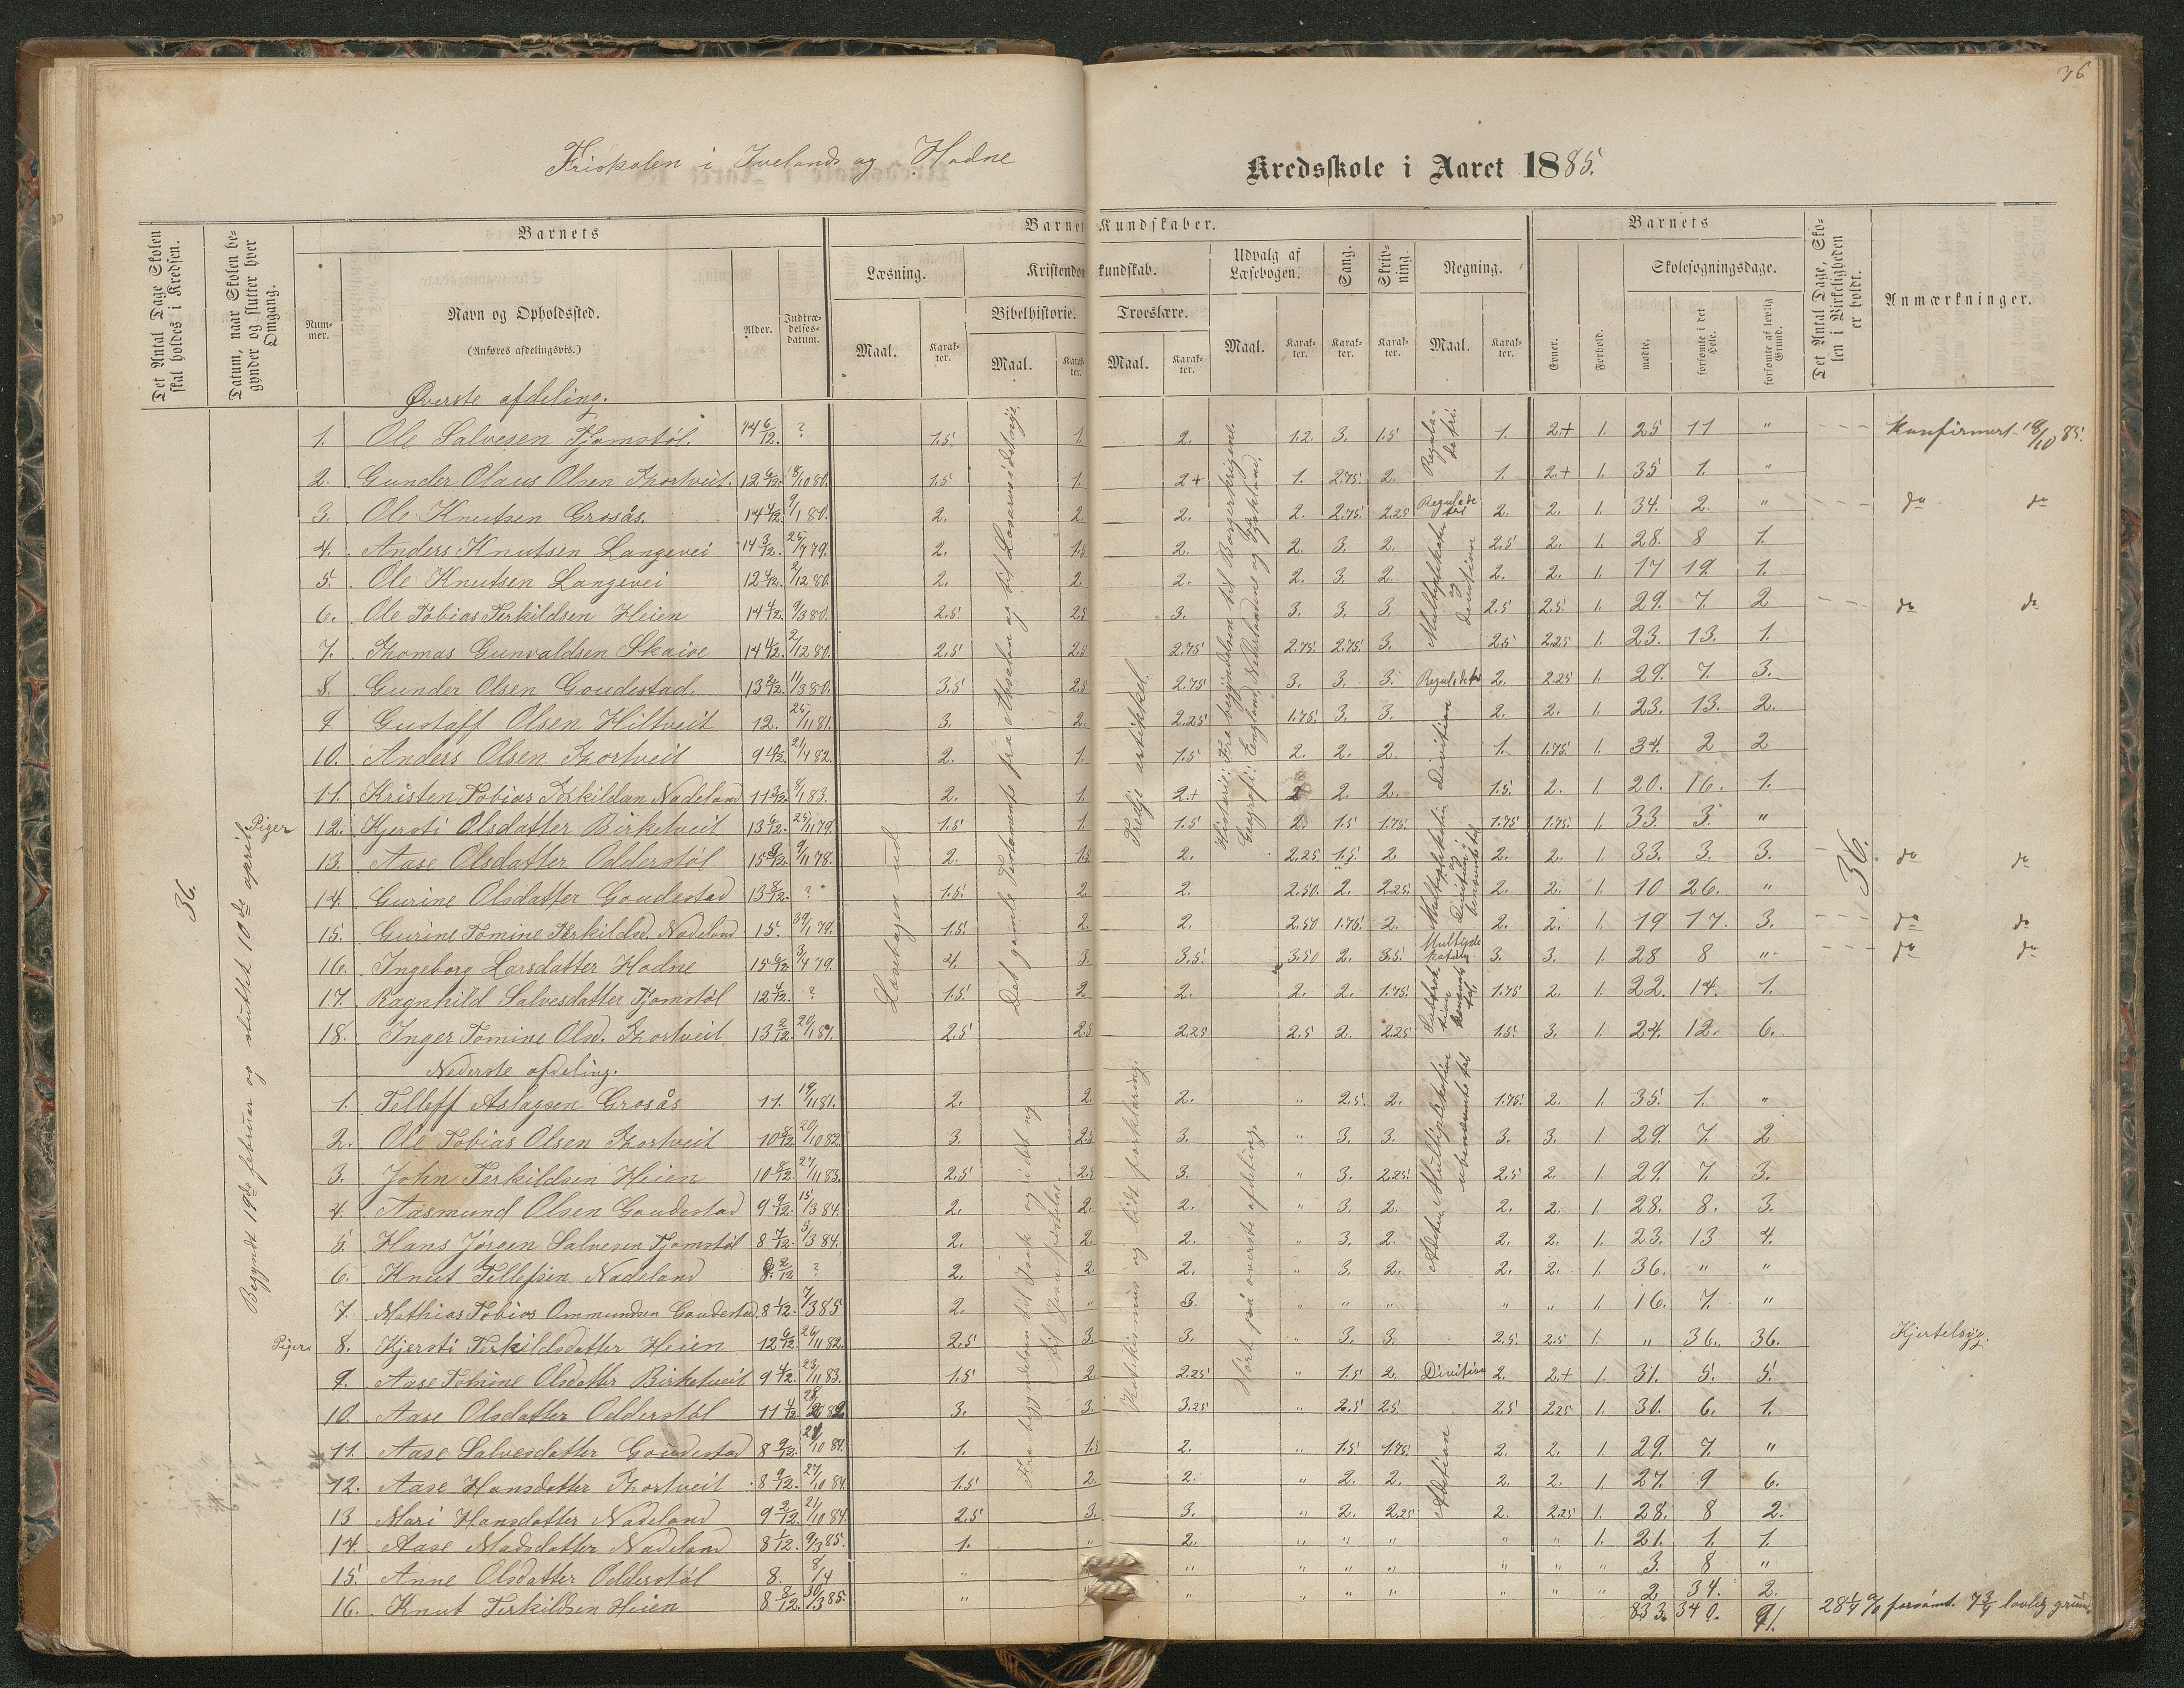 36
Friskolen i Ivelands og Hodne Kredsskole i Aaret 1885.
Det Antal Dage Skolen skal holdes i Kredsen.
Datum, naar Skolen begynder og slutter hver Omgang.
Barnets
Nummer.
Navn og Opholdssted.
(Anføres afdelingsvis.)
Alder.
Indtrædelsesdatum.
Barnets Kundskaber.
Læsning.
Maal.
Karakter.
Kristendomskundskab.
Bibelhistorie.
Maal.
Karakter.
Troeslære.
Maal.
Karakter.
Udvalg af Læsebogen.
Maal.
Karakter.
Sang.
Karakter.
Skrivning.
Karakter.
Regning.
Maal.
Karakter.
Barnets
Evner.
Forhold.
Skolesøgningsdage.
mødte.
forsømte i det Hele.
forsømte af lovlig Grund.
Det Antal Dage, Skolen i Virkeligheden er holdt.
Anmærkninger.
36.
Begyndt 19de februar og sluttet 10de april.
Læsebogen ud
Tredje artikkel.
36.
Øverste afdeling.
1. Ole Salvesen Tjomstøl. 14 6/12. ? 1.5 1. 2. 1.2. 3. 1.5 1. 2+ 1. 25 11 " Konfirmert 18/10 85.
2. Gunder Olaus Olsen Thortveit. 12 6/12. 18/10 80. 1.5 1. 2+ 1. 2.75. 2. 1. 2.+ 1. 35 1. "
3. Ole Knutsen Grosås. 14 4/12. 9/1 80. 2. 2. 2. 2. 2.75. 2.25 Regula de tri 2. 2. 1. 34. 2. " do do
4. Anders Knutsen Langevei 14 3/12. 25/4 79. 2. 1.5 2. 2. 3. 2. 2.5 2. 1. 28. 8 1.
5. Ole Knutsen Langevei 12 4/12. 2/12 80. 2. 2. 2. 2. 3. 2. 2. 2. 1. 17 19. 1.
6. Ole Tobias Terkildsen Heien 14 4/12. 9/3 80. 2.5 2.5 3. 3. 3. 3. 2.5 2.5 1. 29. 7. 2 do do
7. Thomas Gunvaldsen Skaiee 14 4/12. 2/12 80. 2.5 2.5 2.75 2.75. 2.75. 3. 2.5 2.25 1. 23. 13. 1.
8. Gunder Olsen Goudestad. 13 2/12. 11/3 80. 3.5 2.5 2.75 3. 3. 3. Regula de tri 2. 2.25 1. 29. 7. 3.
9. Gustaff Olsen Hiltveit 12. 25/11 81. 3. 2. 2.25 1.75. 3. 3. 2. 2. 1. 23. 13. 2.
10. Anders Olsen Thortveit 9 10/12. 21/4 82. 2. 1. 1.5 2. 2. 2. 1. 1.75. 1. 34. 2 2
11. Kristen Tobias Terkildsen Nadeland 11 3/12. 8/1 83. 2. 1. 2.+ 2 2. 2. 1.5. 2. 1. 20. 16. 1.
Piger 12. Kjersti Olsdatter Birketveit 13 6/12. 25/11 79. 1.5 1. 1.5 2. 1.5 1.75. 1.75 1.75. 1. 33. 3. "
13. Aase Olsdatter Odderstøl 15 8/12. 9/11 78. 2. 1.5 2. 2.25. 1.5. 2 2. 2. 1. 33. 3. 3. do do
14. Gurine Olsdatter Goudestad 13 8/12. ? 1.5. 2 2. 2.50. 2. 2.25. 2. 2. 1. 10 26. "
15. Gurine Tomine Terkildsd. Nadeland 15. 30/1 79. 1.5. 2 2. 2.50 1.75. 2. 2. 2. 1. 19 17. 3. do do
16. Ingeborg Larsdatter Hodne 15 6/12. 3/4 79. 4. 3. 3.5. 3.50 2. 3.5. 3. 3. 1. 28 8 " do do
17. Ragnhild Salvesdatter Tjomstøl 12 4/12. ? 1.5. 2 2. 2. 2. 1.75. 1.75 2. 1. 22. 14. 1.
18. Inger Tomine Olsd. Thortveit 13 2/12. 20/1 81. 2.5 2.5 2.25 2.5 2. 2.25 1.5. 3. 1. 24. 12. 6.
Nederste afdeling.
1. Telleff Aslagsen Grosås 11. 19/11 81. 2. 2. 2. " 2.5. 2. 1.75. 2. 1. 35. 1. "
2. Ole Tobias Olsen Thortveit 10 8/12 20/10 82. 3. 2.5 3. " 3. 3. 3. 3. 1. 29. 7. 2
3. John Terkildsen Heien 10 8/12. 27/11 83. 2.5 2.5 3. " 3. 2.25. 2.5 2. 1. 29. 7. 3.
4. Aasmund Olsen Goudestad 9 9/12. 15/3 84. 2. 2. 2. " 3. 2. 2. 2. 1. 28. 8. 3.
5. Hans Jørgen Salvesen Tjomstøl 8 7/12. 5/3 84. 2. 2. 2. " 3. 2. 2. 2. 1. 23. 13 4.
6. Knut Tellefsen Nadeland 8 2/12 ? 2. 2 2. " 3. 2. 2. 2. 1. 36. " "
7. Mathias Tobias Ommundsen Goudestad, 8 1/12. 7/3 85 2. " 3. " " " " " 1. 16. 7. "
Piger 8. Kjersti Terkildsdatter Heien 12 6/12. 26/11 82. 2.5 3. 3. " 3. 3. 2.5. 2.5 1. " 36. 36. Kjertelsyg.
9. Aase Tomine Olsdatter Birketveit 9 4/12. 23/11 83. 1.5 2 2.25 " 1.5 2 Division 2. 2.+ 1. 31. 5. 5.
10. Aase Olsdatter Odderstøl 11 4/12. 3. 3. 3.25 " 2.5 2.5 2.5 2.25 1. 30. 6. 1.
11. Aase Salvesdatter Goudestad 8 9/12. 21/10 84. 1. 1.5 2. " 1.5. 1.75. 2. 2. 1. 29. 7. "
12. Aase Hansdatter Thortveit 8 9/12. 27/10 84. 1.5 2. 2. " 2. 2. 2. 2. 1. 27. 9 6.
13 Mari Hansdatter Nadeland 9 2/12. 21/10 84. 2.5 3. 3. " 2. 2.25 2. 2.25 1. 28. 8 2.
14. Aase Madsdatter Nadeland 8 1/12. 9/3 85. 1. " 2. " " " " " 1. 21. 1. 1.
15. Anne Olsdatter Odderstøl 8. 8/4 " " " " " " " " " 3. 8 "
16. Knut Terkildsen Heien 8 8/12. 30/3 85. " " " " " " " " 2. 34. 2.
833. 340. 91. 28 1/4 % forsömt. 7 3/4 lovlig grund